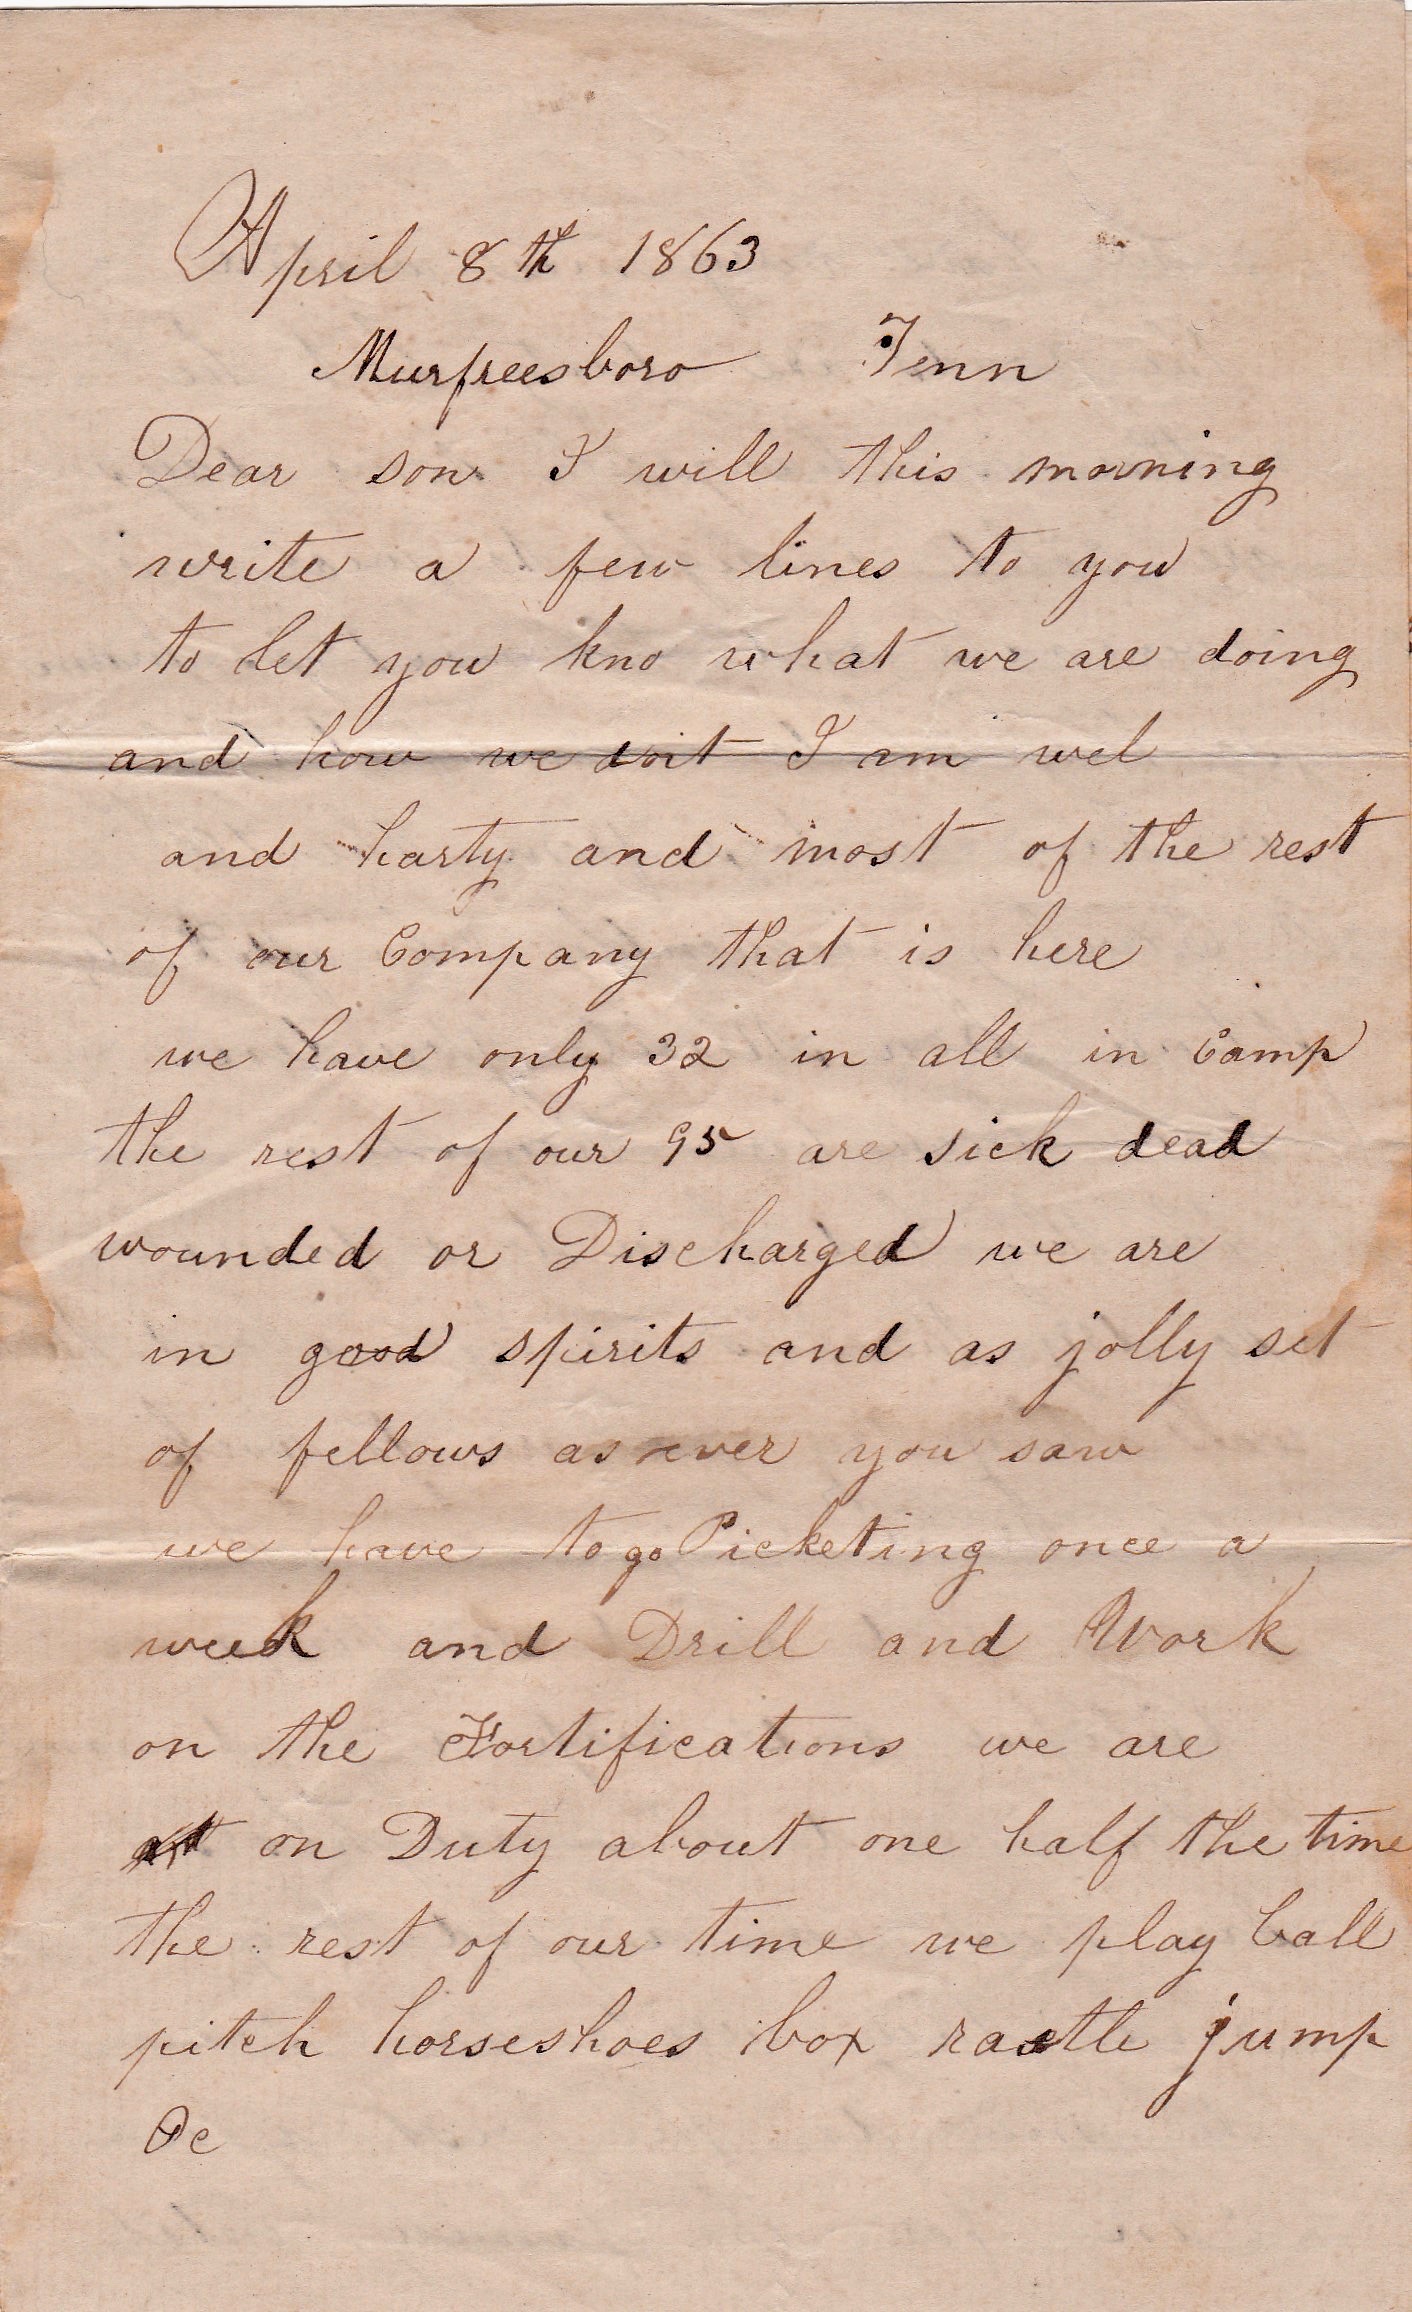 April 8th 1863
Murfreesboro Tenn
Dear son I will this morning
write a few lines to you
to let you kno what we are doing
and how we doit I am wel
and harty and most of the rest
of our Company that is here
we have only 32 in all in Camp
the rest of our 95 are sick dead
wounded or Discharged we are
in good spirits and as jolly set
of fellows as ever you saw
we have to go Picketing once a
week and Drill and Work
on the Fortifications we are
on Duty about one half the time
the rest of our time we play ball
pitch horseshoes box rastle jump
&c